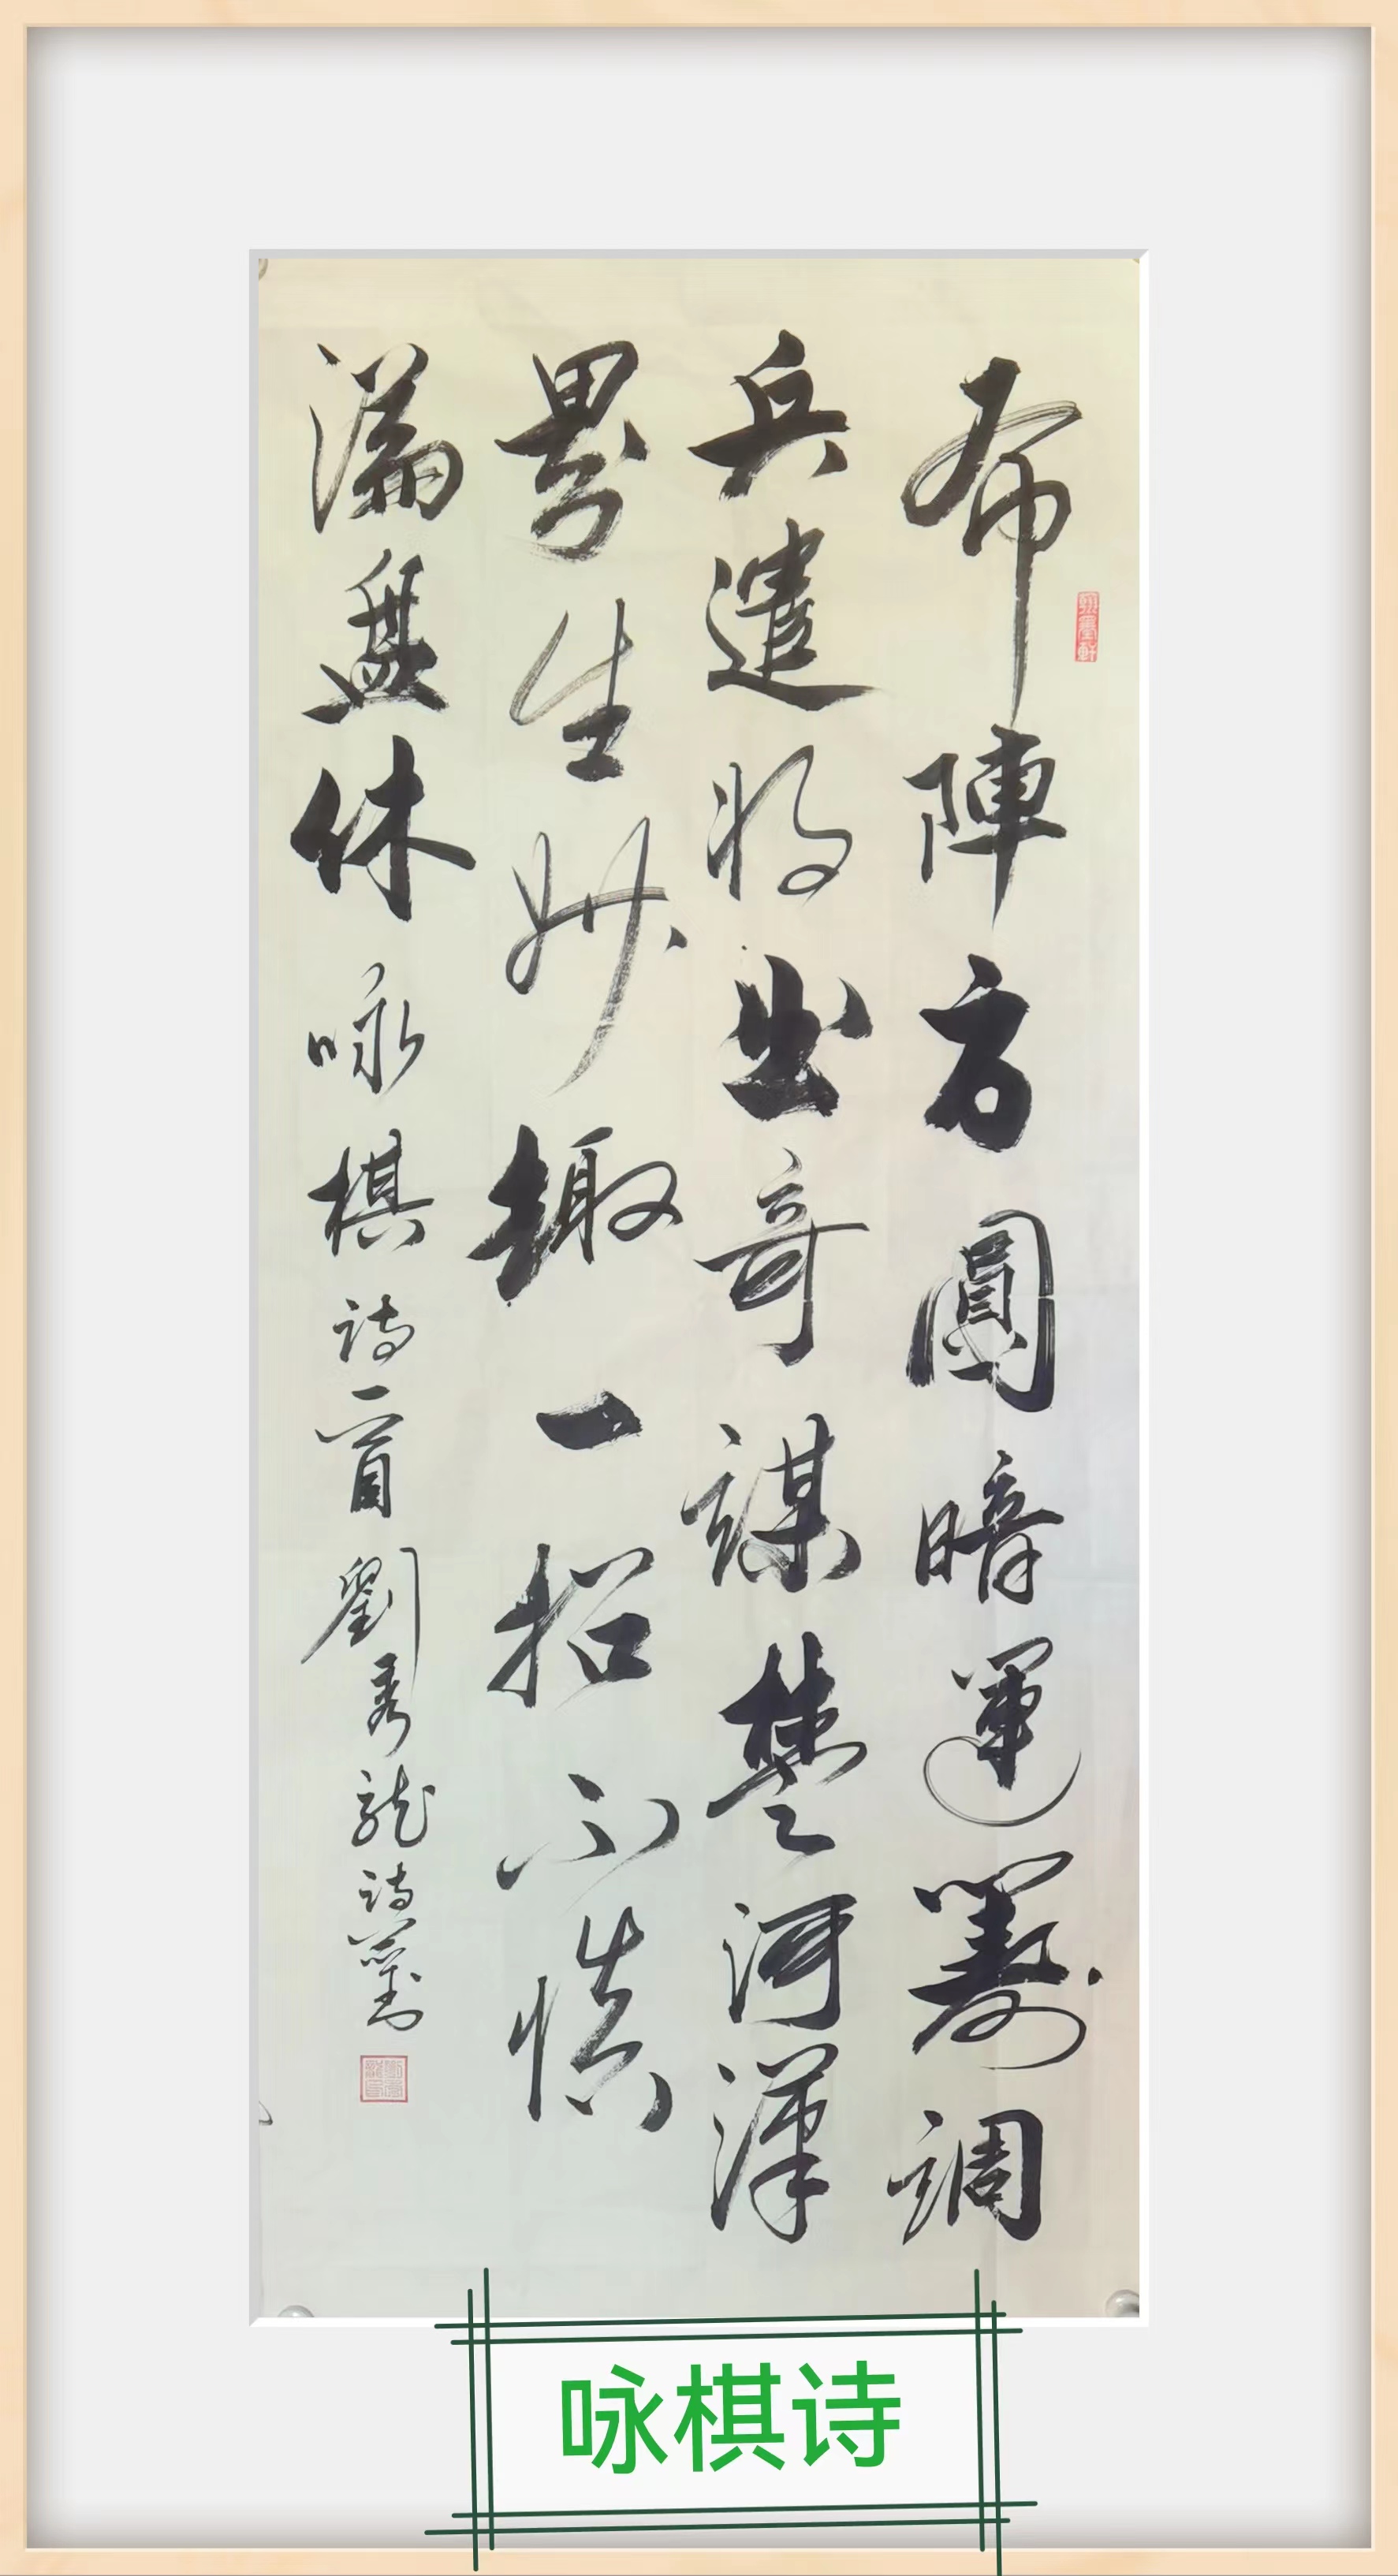 布陣方圓暗運籌調
兵遣將出奇謀楚河漢
界生妙趣一招不慎
滿盤休
咏棋詩一首劉秀龍詩書
翰墨軒
咏棋诗